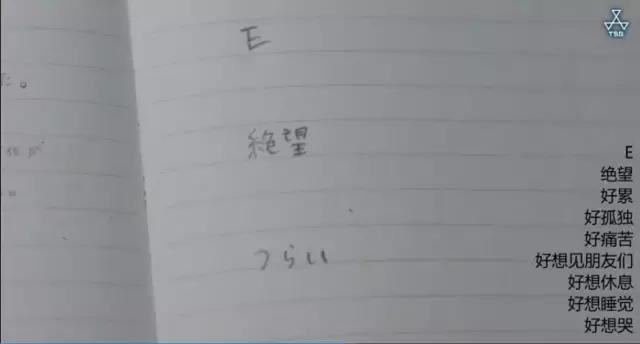 TSB
E
絶望
つらい
た。
E
绝望
好累
好孤独
好痛苦
好想见朋友们
好想休息
好想睡觉
好想哭